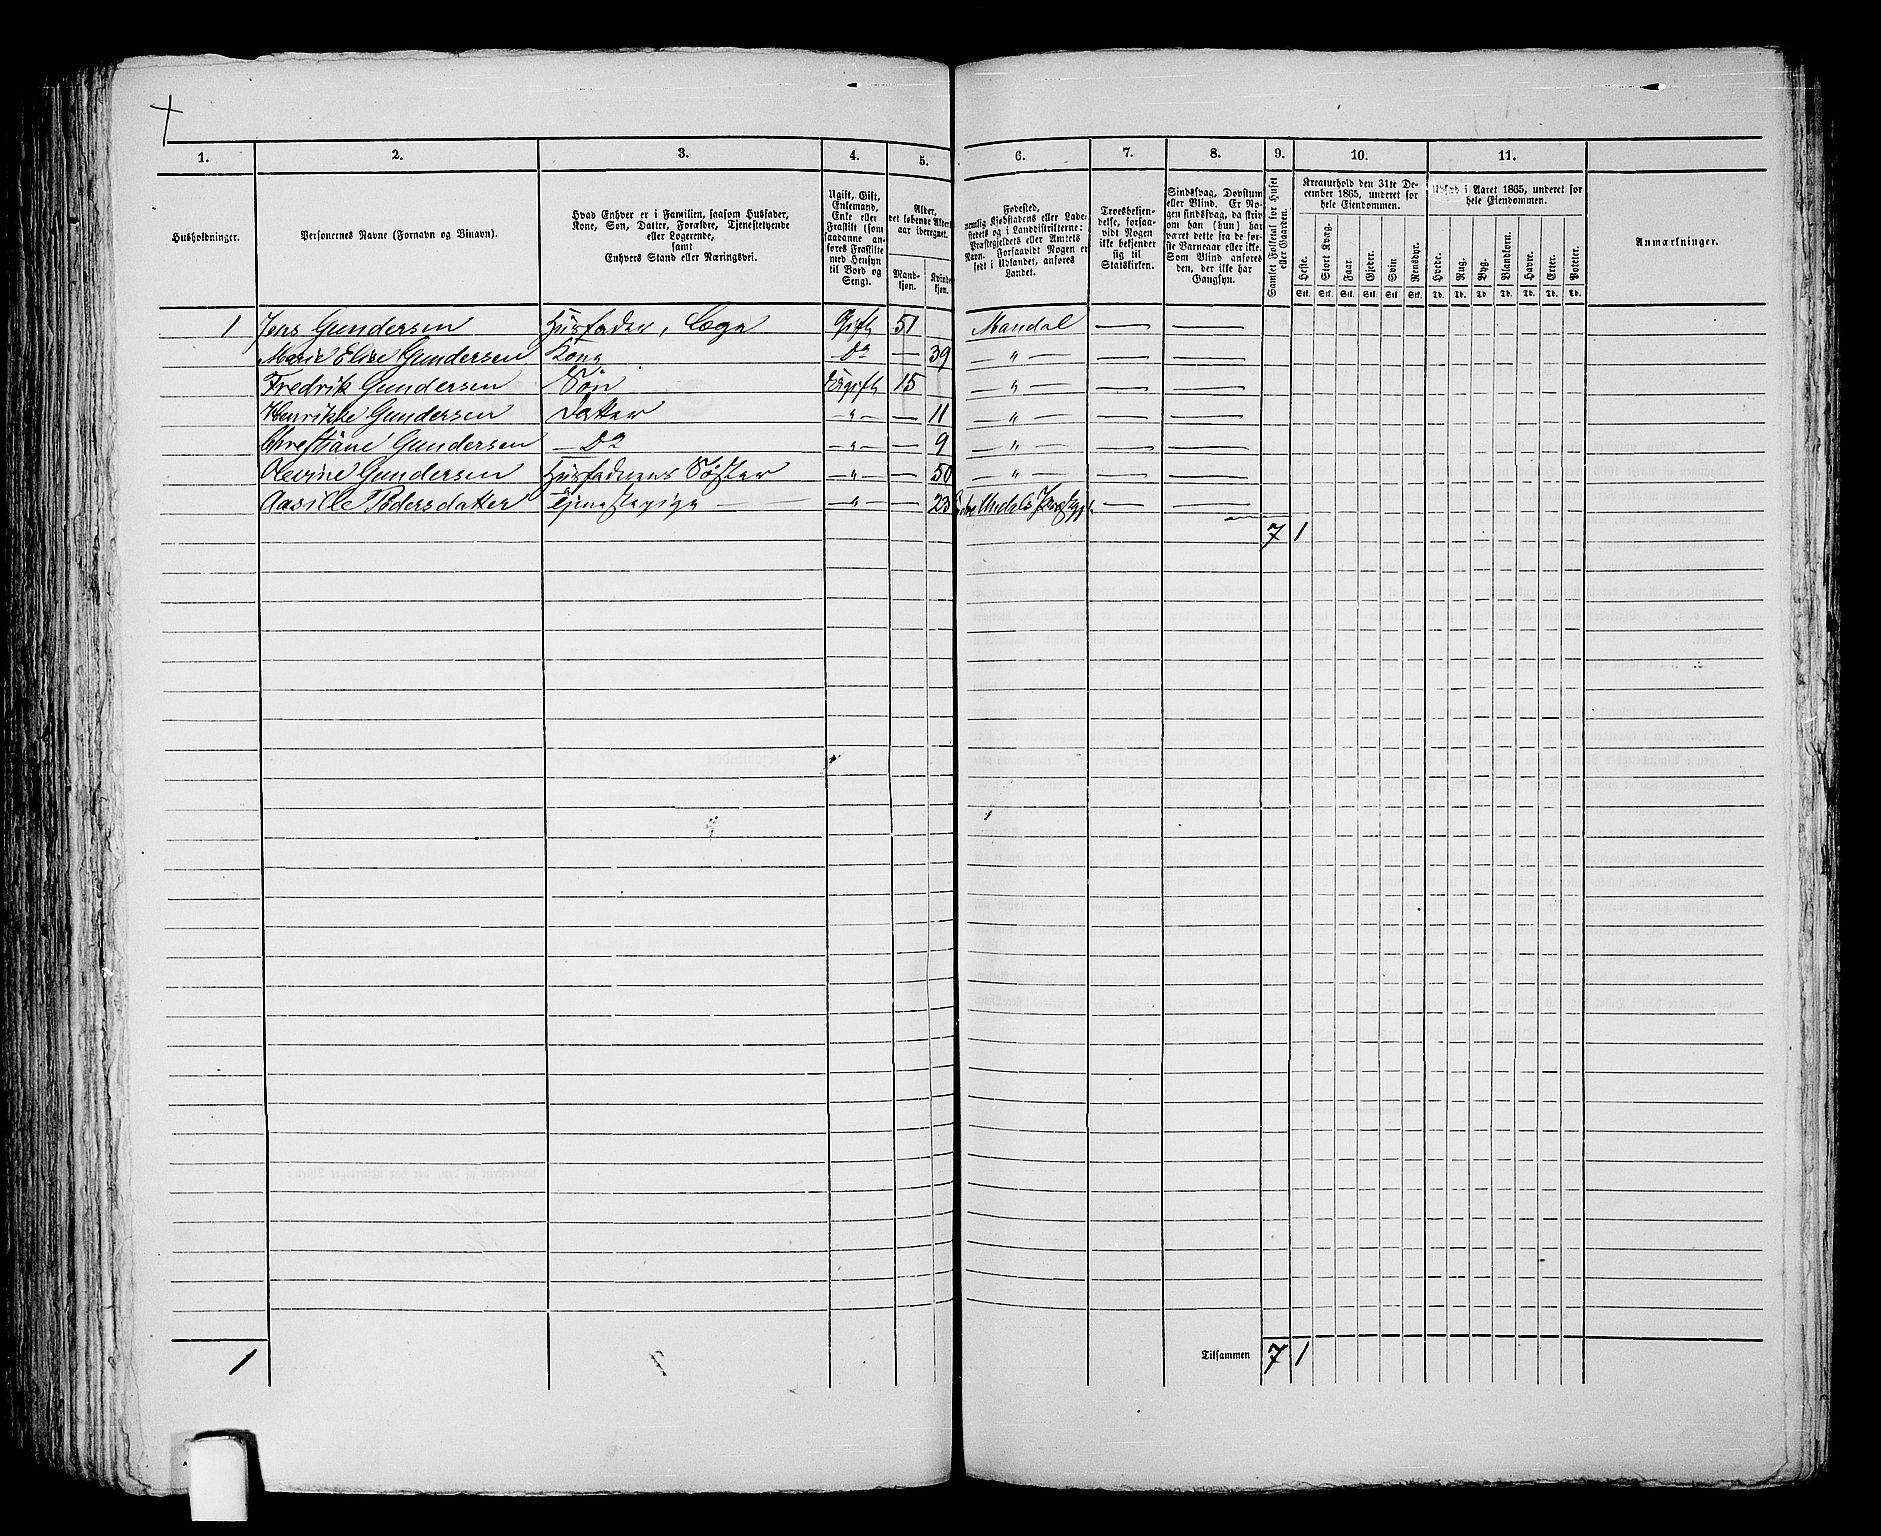 1. 2. 3. 4. 5. 6. 7. 8. 9. 10. 11.
Husholdninger.
Personernes Navne (Fornavn og Binavn).
Hvad Enhver er i Familien, saasom Husfader,
Kone, Søn, Datter, Forældre, Tjenestetyende
eller Logerende,
samt
Enhvers Stand eller Næringsvei.
Ugift, Gift,
Enkemand,
Enke eller
Fraskilt (som
saadanne an-
føres Fraskilte
med Hensyn
til Bord og
Seng).
Alder,
det løbende Alders-
aar iberegnet.
Mand-
kjøn.
Kvinde-
kjøn.
Fødested,
nemlig Kjøbstadens eller Lade-
stedets og i Landdistrikterne:
Præstegjeldets eller Amtets
Navn. Forsaavidt Nogen er
født i Udlandet, anføres
Landet.
Troesbekjen-
delse, forsaa-
vidt Nogen
ikke bekjender
sig til
Statskirken.
Sindssvag, Døvstum
eller Blind. Er No-
gen sindssvag, da skriv
om han (hun) har
været dette fra de før-
ste Barneaar eller ikke.
Som Blind anføres
den, der ikke har
Gangsyn.
Samlet Folketal for Huset
eller Gaarden.
Kreaturhold den 31te De-
cember 1865, underet for
hele Eiendommen.
Heste. Stort Kvæg. Faar. Gjeder. Svin Rensdyr.
Stk. Stk. Stk. Stk. Stk. Stk.
Udsæd i Aaret 1865, underet for
hele Eiendommen.
Hvede. Rug. Byg. Blandkorn. Havre. Erter. Poteter.
Td. Td. Td. Td. Td. Td. Td.
Anmærkninger.
1 Jens Gundersen Husfader, Læge Gift 51 Mandal — —
Marie Elise Gundersen Kone Do — 39 — " — — —
Fredrik Gundersen Søn Ugift 15 — " — — —
Henrikke Gundersen Datter — " — — 11 — " — — —
Christiane Gundersen — Do — " — — 9 — " — — —
Olevine Gundersen Husfaderens Søster — " — — 50 — " — — —
Aasille Pedersdatter Tjenestepige — " — — 23 — —
7 1
1 Tilsammen 7 1